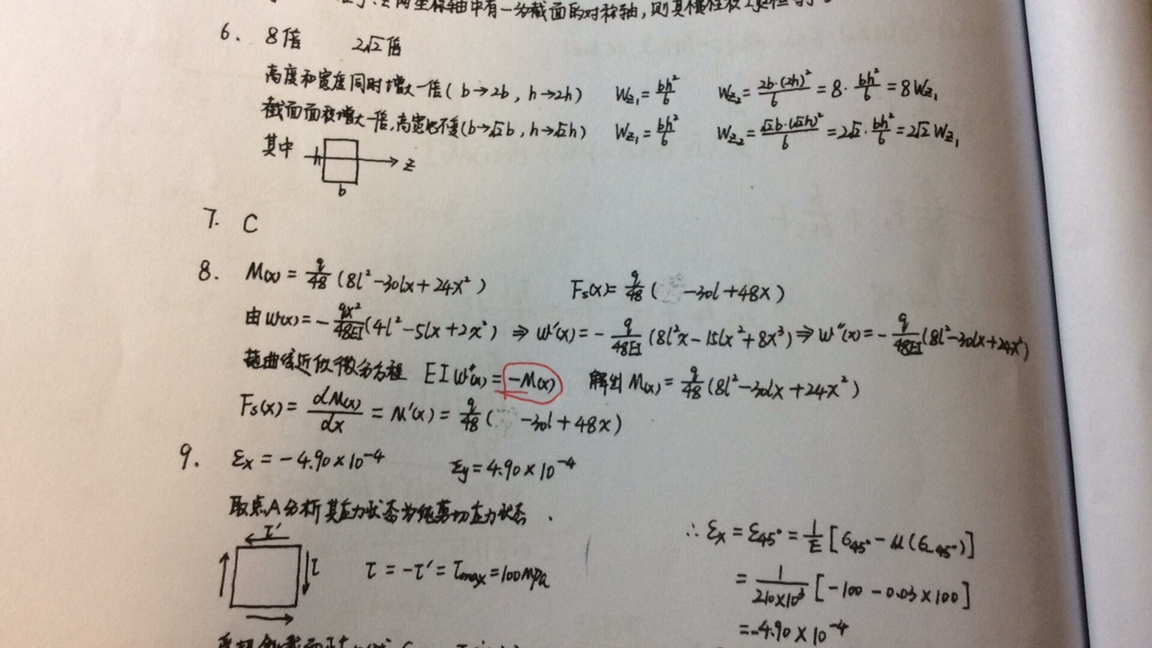 两坐标轴中有一为截面的对称轴,则其惯性积
6. 8倍 2√2倍
高度和宽度同时增大一倍(b→2b, h→2h) Wz₁=bh²/6 Wz₂=2b·(2h)²/6=8·bh²/6=8Wz₁
截面面积增大一倍,高宽比不变(b→√2b, h→√2h) Wz₁=bh²/6 Wz₂=√2b·(√2h)²/6=2√2·bh²/6=2√2Wz₁
其中 h z
b
7. C
8. M(x)=q/48(8l²-30lx+24x²) Fs(x)=q/48( -30l+48x)
由w(x)=-qx²/48EI(4l²-5lx+2x²) ⇒ w'(x)=-q/48EI(8l²x-15lx²+8x³) ⇒ w''(x)=-q/48EI(8l²-30lx+24x²)
挠曲线近似微分方程 EIw''(x)=-M(x) 解出 M(x)=q/48(8l²-30lx+24x²)
Fs(x)=dM(x)/dx=M'(x)=q/48( -30l+48x)
9. εx=-4.90×10⁻⁴ εy=4.90×10⁻⁴
取点A分析其应力状态为纯剪切应力状态.
τ' τ τ=-τ'=τmax=100MPa
∴εx=ε45°=1/E[σ45°-μ(σ-45°)]
=1/210×10³[-100-0.03×100]
=-4.90×10⁻⁴